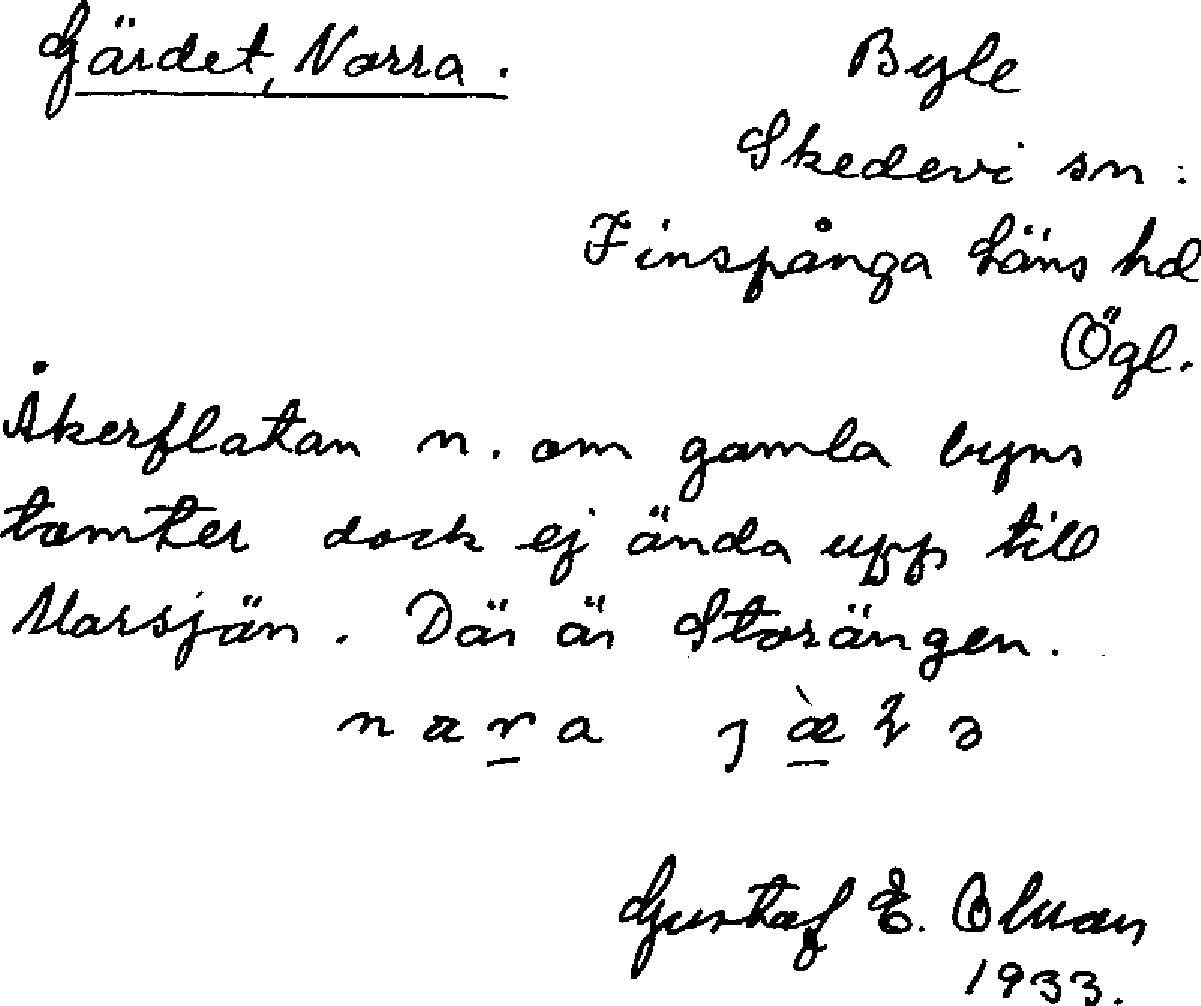 Gärdet, Norra.
Byle
Skedevi sn:
Finspånga läns hd
Ögl.
Åkerflatan n. om gamla byns
tomter dock ej ända upp till
Marsjön. Där är Storängen.
Gustaf E.
1933.